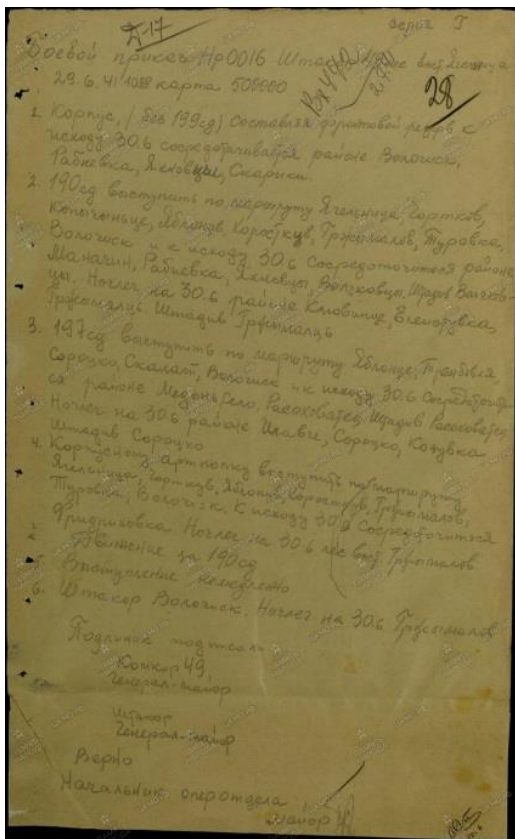 А-17
серия Г
Боевой приказ Нр0016 Штакор 49 лес вост. Ягельница
29.6.41 1088 карта 500000
Вх 442
28
1. Корпус, (без 199сд) Составляя фронтовой резерв к
исходу 30.6 сосредотачивается районе Волочиск,
Рабиевка, Яхновцы, Скарики.
2. 190сд выступить по маршруту Ягельница, Чортков,
Копычыньце, Яблонов, Хоросткув, Гржималов, Туровка,
Волочиск и к исходу 30.6 Сосредоточиться районе
Маначин, Рабиевка, Яхновцы, Волчковцы. Штадив Волчков-
цы. Ночлег на 30.6 районе Клювинце, Еленорувка,
Гржымалув. Штадив Гржымалув
3. 197сд выступить по маршруту Яблонув, Трембовля,
Сороцко, Скалат, Волочиск и к исходу 30.6 Сосредоточить-
ся районе Медынь, Село, Росоховатец. Штадив Росоховатец
Ночлег на 30.6 районе Илавче, Сороцко, Козувка
Штадив Сороцко
4. Корпусному артполку выступить по маршруту
Ягельница, Чортков, Яблонув, Хоростков, Гржималов,
Туровка, Волочиск. К исходу 30.6 Сосредоточиться
Фридриховка Ночлег на 30.6 лес вост. Гржымалов
Движение за 190сд
5. Выступление немедленно
6. Штакор Волочиск. Ночлег на 30.6 Гржымалов
Подлинник подписали
Комкор 49
Генерал-майор
Штакор
Генерал-майор
Верно
Начальник оперотдела
майор